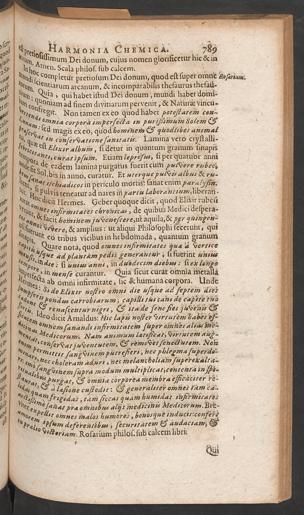 HARMONIA CHEMICA. 789
pretiosissimum Dei donum, cujus nomen glorificetur hic & in
Amen. Scala philos. sub calcem.
hoc completur pretiosum Dei donum, quod est super omne Rosarium.
mundi scientiarum arcanum, & incomparabilis thesaurus thesau-
Quia, qui habet istud Dei donum, mundi habet domi-
quoniam ad finem divitiarum pervenit, & Naturæ vincu-
Non tamen ex eo quod habet potestatem con-
omnia corpora imperfecta in purissimum Solem &
sed magis ex eo, quod hominem & quodlibet animal
in conservatione sanitatis. Lamina vero crystalli-
est Elixir album, si detur in quantum granum sinapis
curat ipsum. Etiam leprosus, si per quatuor anni
de eodem lamina purgatus fuerit cum pulvere rubeo,
Sol, bis in anno, curatur. Et uterque pulvis albus & ru-
in periculo mortis: sanat enim paralysim.
si pulvis teneatur ad nares in partu laborantium, liberan-
Hoc dicit Hermes. Geber quoque dicit, quod Elixir rubeū
infirmitates chronicas, de quibus Medici despera-
& facit hominem juvenescere, ut aquila, & per quingen-
vivere, & amplius: ut aliqui Philosophi fecerunt, qui
eo tribus vicibus in hebdomada, quantum granum
Quare nota, quod omnes infirmitates quæ à vertice
usque ad plantam pedis generantur, si fuerint unius
in die: si unius anni, in duodecim diebus: si ex longo
in mense curantur. Quia sicut curat omnia metalla
ab omni infirmitate, sic & humana corpora. Unde
Hermes: Si de Elixir nostro omni die usque ad septem dies
pondus carbonarium, capilli tui cani de capite tuo
& renascentur nigri, & ita de sene fies juvenis &
Ideo dicit Arnaldus: Hic lapis noster virtutem habet ef-
omnem sanandi infirmitatem super omnes alias me-
Medicorum. Nam animum lætificat, virtutem aug-
conservat juventutem, & removet senectutem. Non
permittit sanguinem putrefieri, nec phlegma superdo-
nec choleram aduri, nec melancholiam superexalta-
sanguinem supra modum multiplicat, contenta in spi-
purgat, & omnia corporea membra efficaciter re-
& à læsione custodit: & generaliter omnes tam ca-
quam frigidas, tam siccas quam humidas infirmitates
sanat præ omnibus aliis medicinis Medicorum. Bre-
expellit omnes malos humores, bonosque inducit: confert
ipsum deferentibus, securitatem & audaciam, &
in prælio victoriam. Rosarium philos. sub calcem libri.
Qui